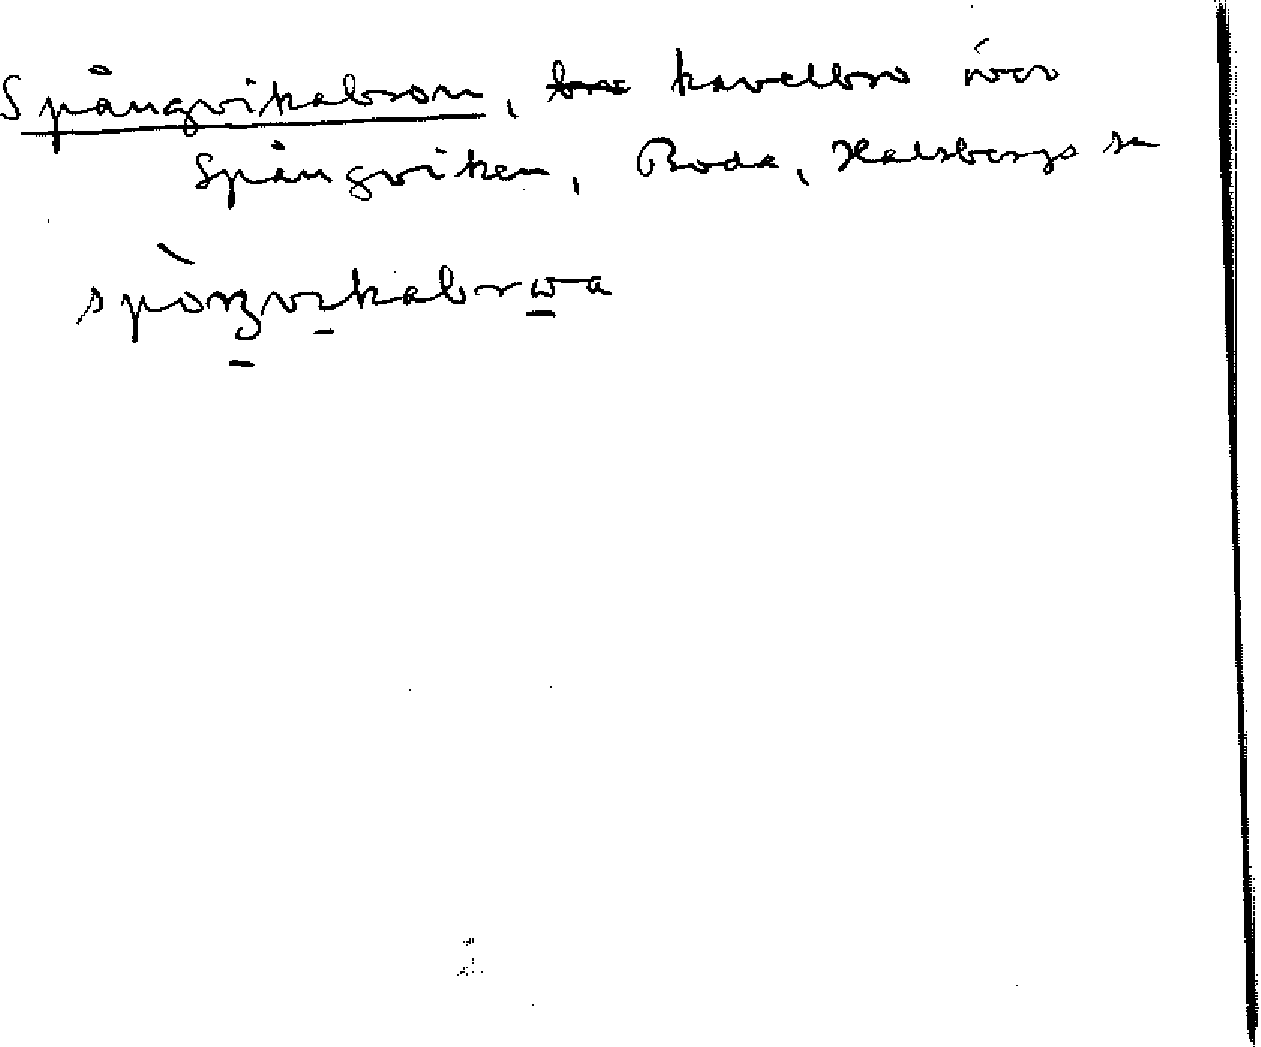 Spångvikabron, bro kavelbro över
Spångviken, Boda, Halsbergs sn
spòŋvikabrωa